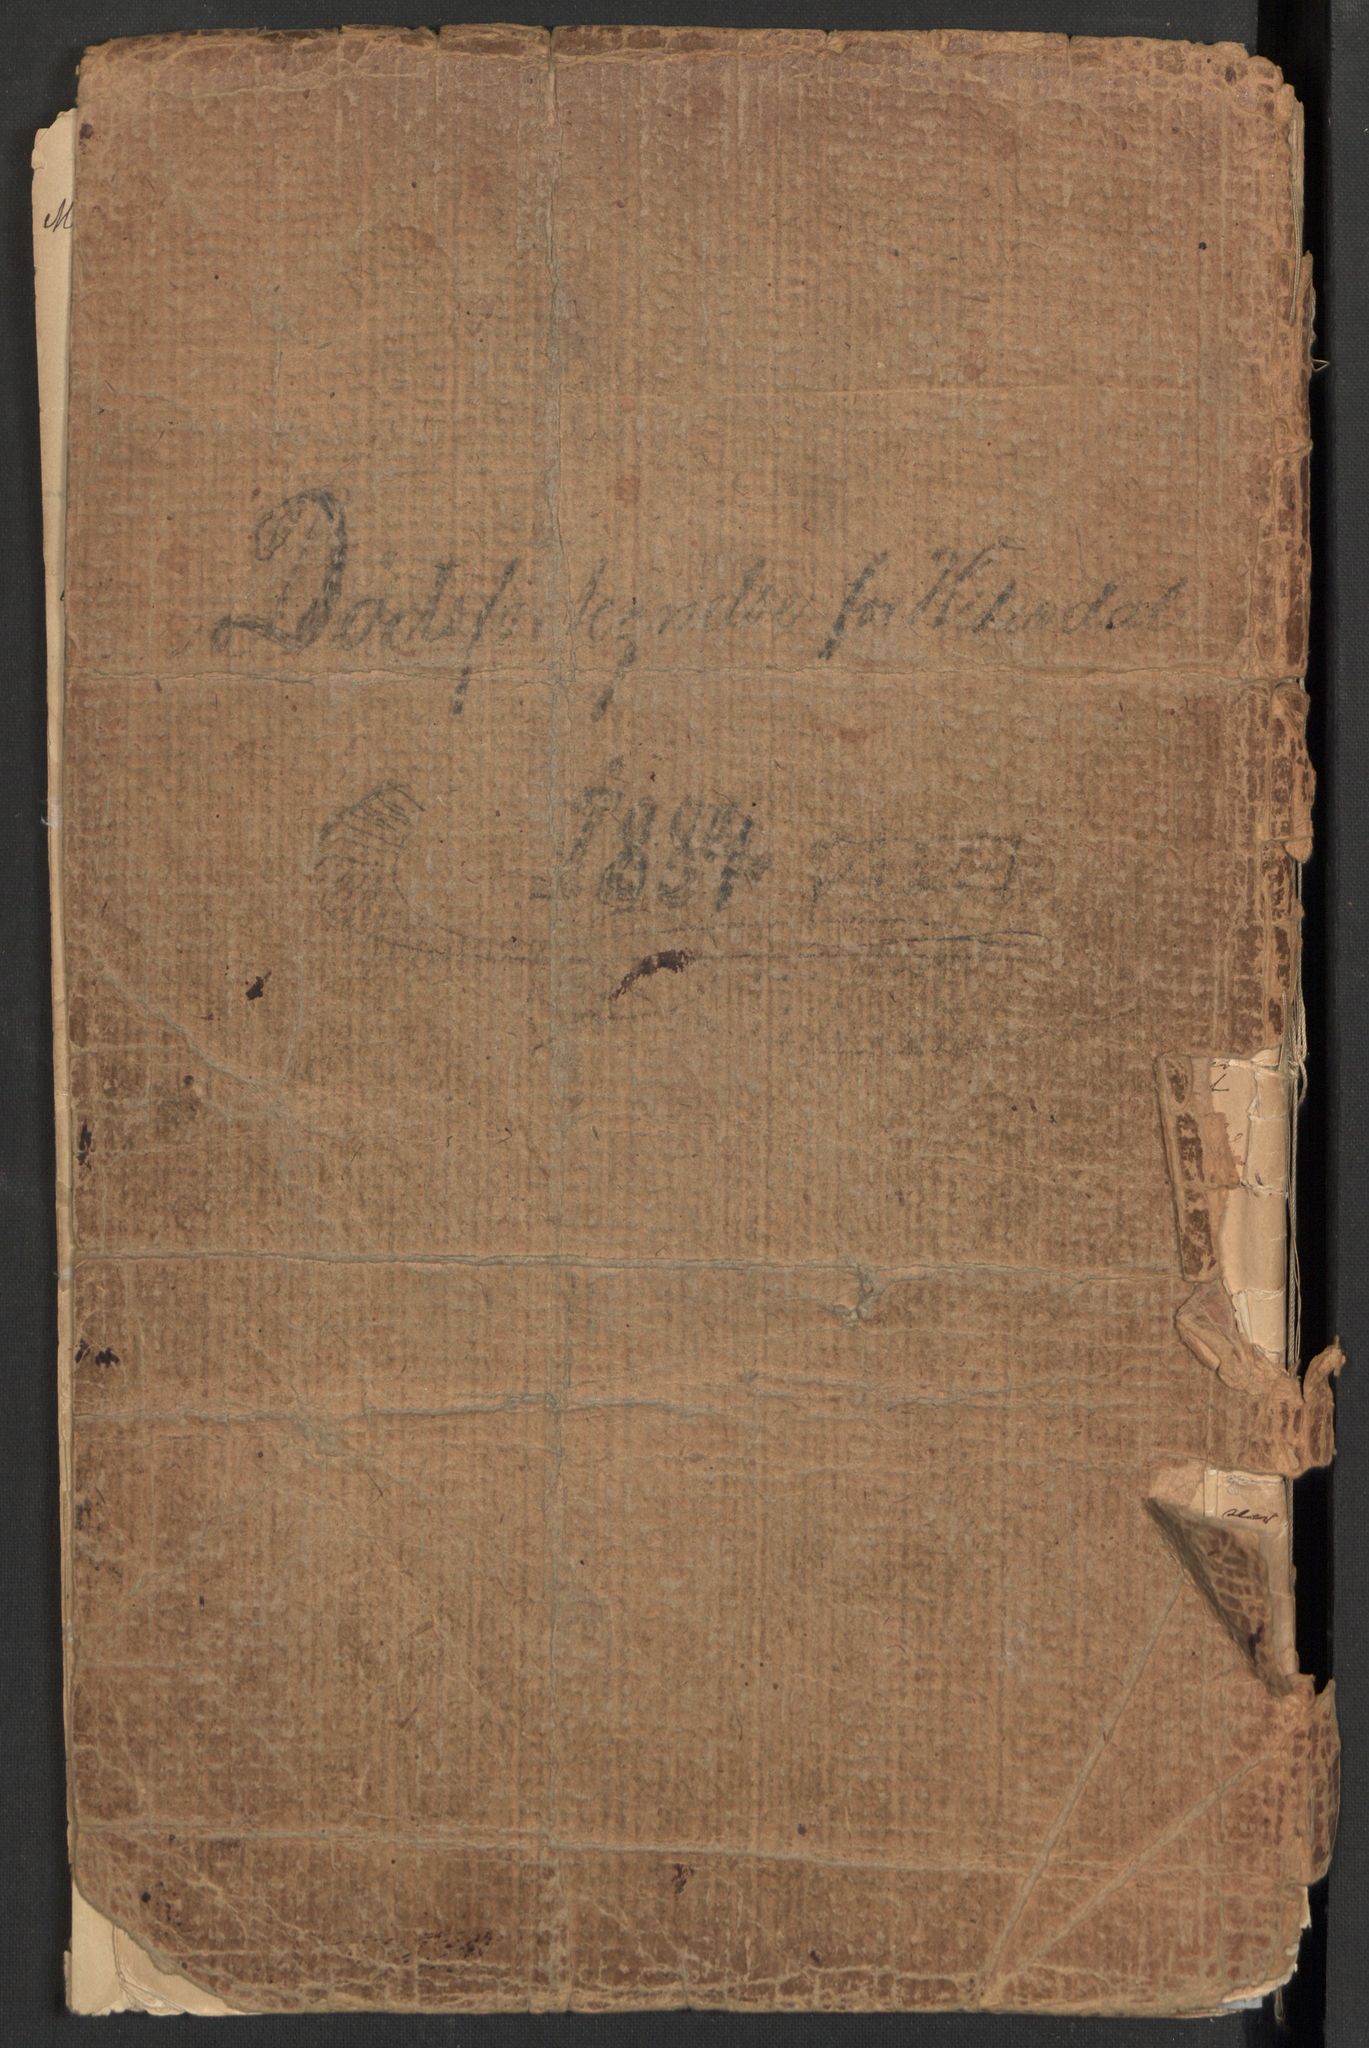 M
Dødsfortegnelse for Hitterdal
1887